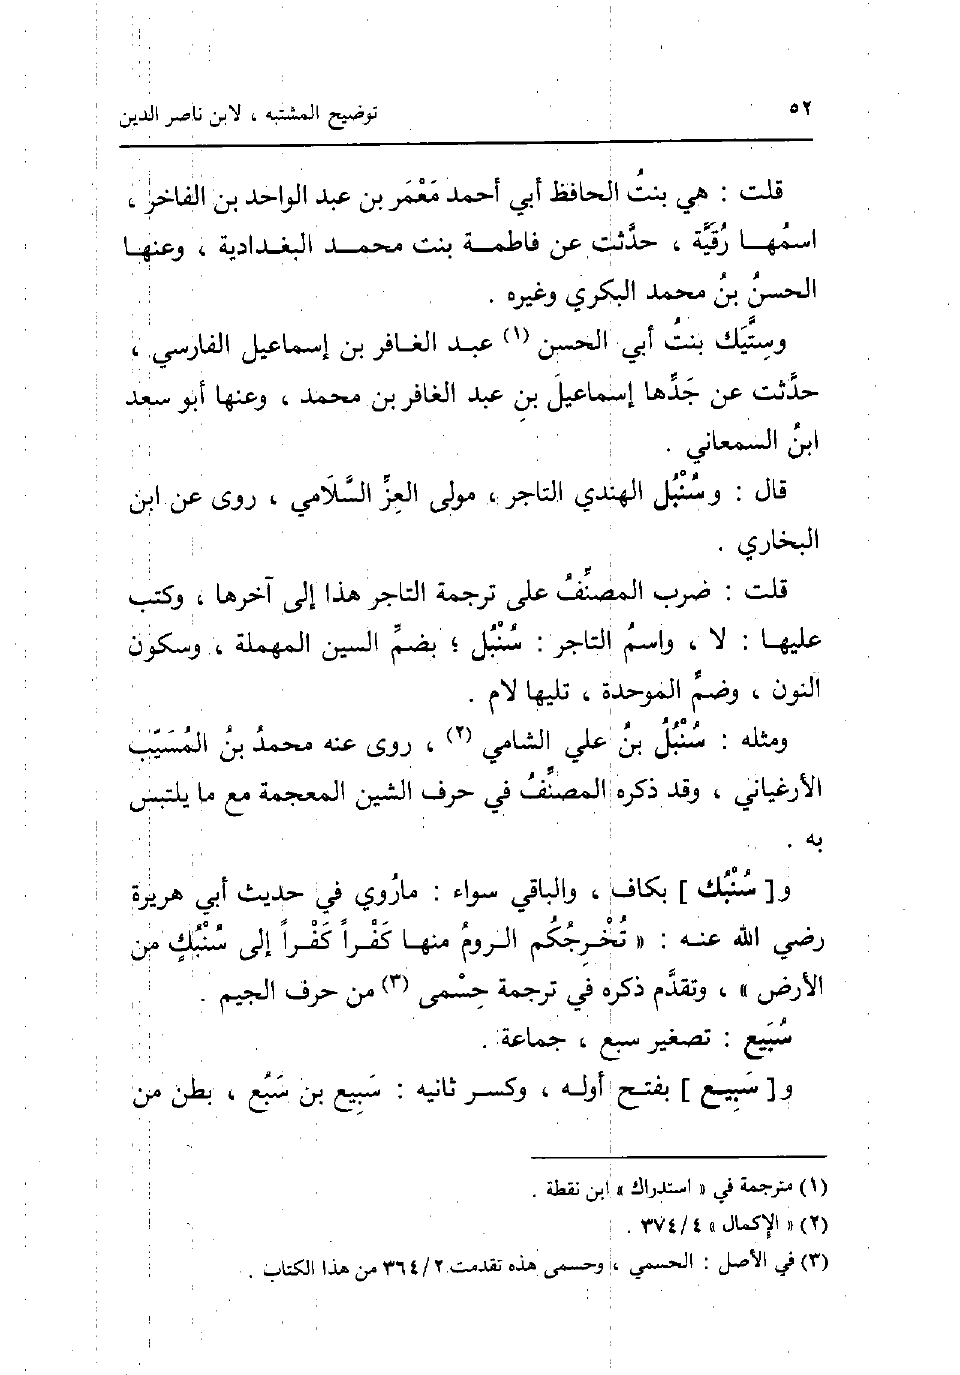 ٥٢
توضيح المشتبه ، لابن ناصر الدين
قلت : هي بنتُ الحافظ أبي أحمد مَعْمَر بن عبد الواحد بن الفاخر ،
اسمُهـا رُقَيَّة ، حدَّثت عن فاطمـة بنت محمـد البغـدادية ، وعنهـا
الحسنُ بنُ محمد البكري وغيره .
وسِتِّيَك بنتُ أبي الحسن (١) عبـد الغـافر بن إسماعيل الفارسي ،
حدَّثت عن جَدِّها إسماعيلَ بنِ عبد الغافر بن محمد ، وعنها أبو سعد
ابنُ السمعاني .
قال : وسُنْبُل الهندي التاجر ، مولى العِزِّ السَّلَامي ، روى عن ابن
البخاري .
قلت : ضرب المصنِّفُ على ترجمة التاجر هذا إلى آخرها ، وكتب
عليهـا : لا ، واسمُ التاجر : سُنْبُل ؛ بضمِّ السين المهملة ، وسكون
النون ، وضمِّ الموحدة ، تليها لام .
ومثله : سُنْبُلُ بنُ علي الشامي (٢) ، روى عنه محمدُ بنُ المُسَيّب
الأرغياني ، وقد ذكره المصنِّفُ في حرف الشين المعجمة مع ما يلتبس
به .
و[ سُنْبُك ] بكاف ، والباقي سواء : مارُوي في حديث أبي هريرة
رضي الله عنـه : « تُخْـرِجُكُم الـرومُ منهـا كَفْـراً كَفْـراً إلى سُنْبُكٍ من
الأرض » ، وتقدَّم ذكره في ترجمة حِسْمى (٣) من حرف الجيم .
سُبَيع : تصغير سبع ، جماعة .
و[ سَبِيـع ] بفتـح أولـه ، وكسـر ثانيه : سَبِيع بن سَبُع ، بطن من
(١) مترجمة في « استدراك » ابن نقطة .
(٢) « الإكمال » ٣٧٤/٤ .
(٣) في الأصل : الحسمي ، وحسمى هذه تقدمت ٣٦٤/٢ من هذا الكتاب .